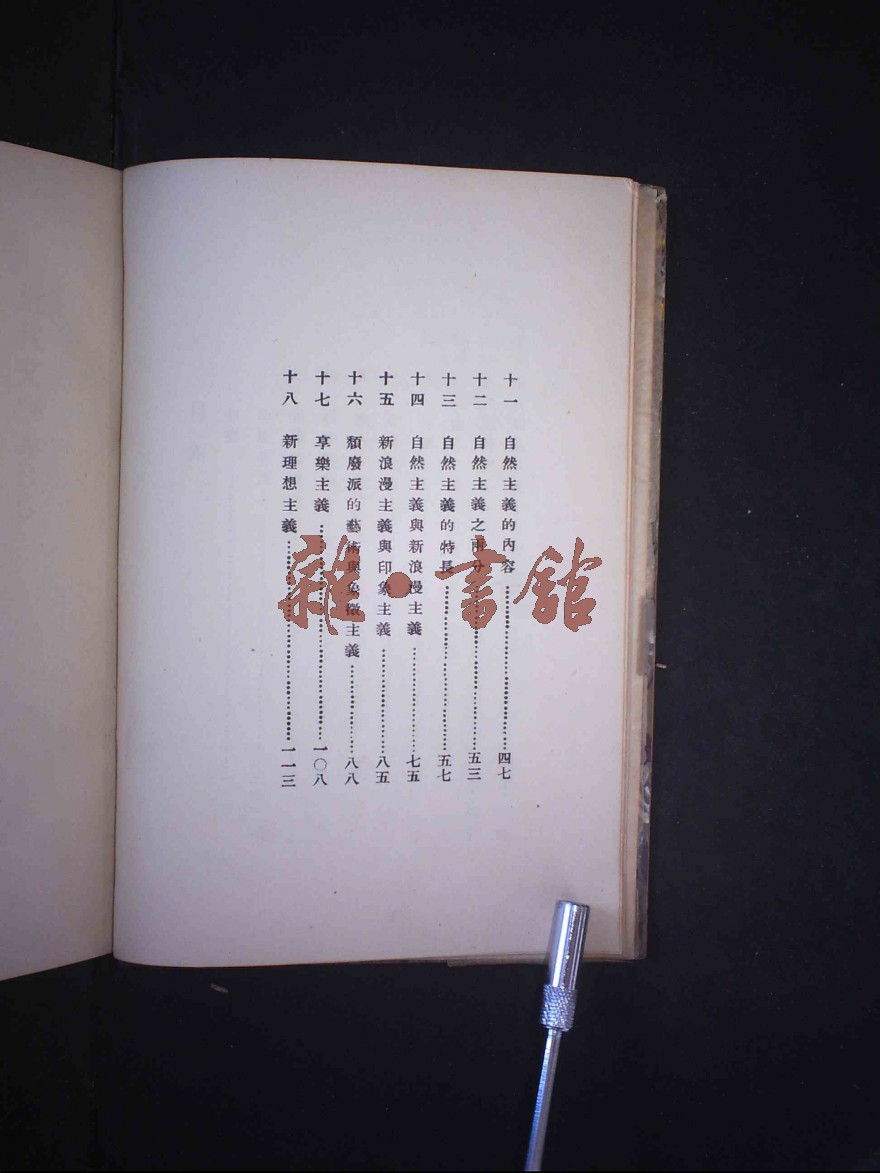 十一 自然主義的內容………………四七
十二 自然主義之兩分………………五三
十三 自然主義的特長………………五七
十四 自然主義與新浪漫主義………………七五
十五 新浪漫主義與印象主義………………八五
十六 頹廢派的藝術與象徵主義………………八八
十七 享樂主義………………一〇八
十八 新理想主義………………一一三
雜·書館